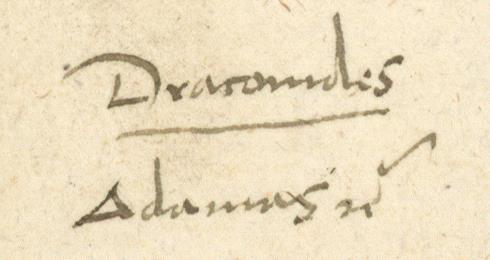 Draconides
Adamas